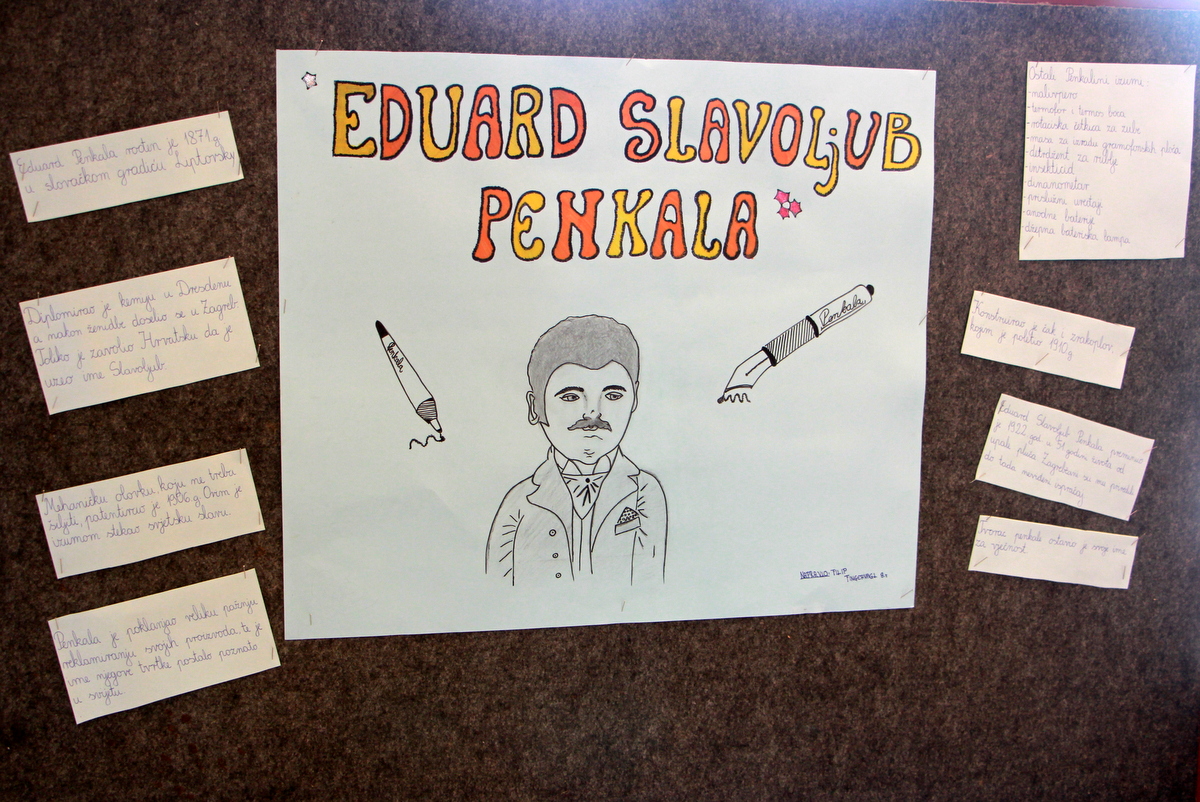 EDUARD SLAVOLjUB
PENKALA
Penkala
Penkala
Eduard Penkala rođen je 1871.g
u slovačkom gradiću Liptovsky
Diplomirao je kemiju u Dresdenu
a nakon ženidbe doselio se u Zagreb
Toliko je zavolio Hrvatsku da je
uzeo ime Slavoljub.
Mehaničku olovku koju ne treba
šiljiti, patentirao je 1906.g. Ovim je
izumom stekao svjetsku slavu.
Penkala je poklanjao veliku pažnju
reklamiranju svojih proizvoda te je
ime njegove tvrtke postalo poznato
u svijetu.
Ostali Penkalini izumi:
-nalivpero
-termofor i termos boca
-rotacijska četkica za zube
-masa za izradu gramofonskih ploča
-detrdžent za rublje
-insekticid
-dinamometar
-anodne baterije
-džepna baterijska lampa
Konstruirao je čak i zrakoplov,
kojim je poletio 1910.g
Eduard Slavoljub Penkala preminuo
je 1922 god u 51 godini života od
upale pluća. Zagrepčani su mu priredili
do tada neviđeni ispraćaj
Tvorac penkale ostavio je svoje ime
za vječnost.
NAPRAVIO: FILIP